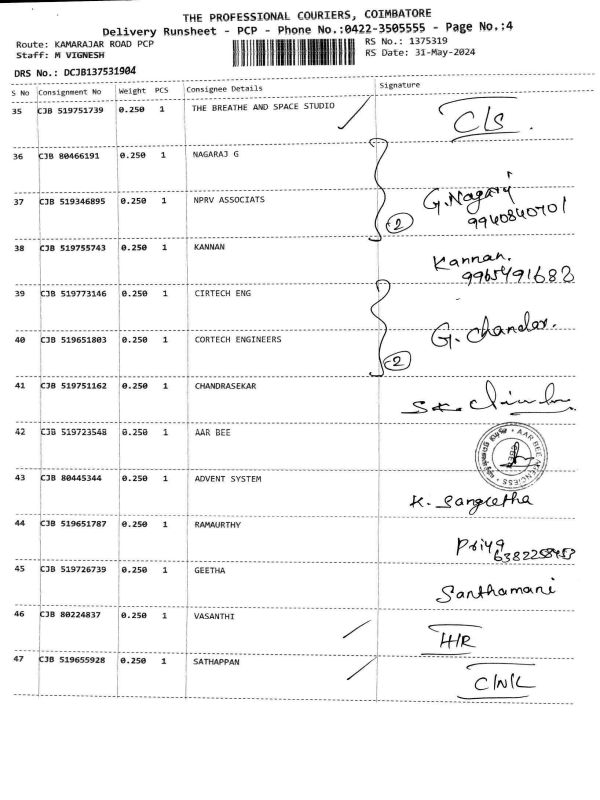 THE PROFESSIONAL COURIERS, COIMBATORE
Delivery Runsheet - PCP - Phone No.:0422-3505555 - Page No.:4
Route: KAMARAJAR ROAD PCP
RS No.: 1375319
Staff: M VIGNESH
RS Date: 31-May-2024
DRS No.: DCJB137531904
S No Consignment No Weight PCS Consignee Details Signature
35 CJB 519751739 0.250 1 THE BREATHE AND SPACE STUDIO C/S
36 CJB 80466191 0.250 1 NAGARAJ G
37 CJB 519346895 0.250 1 NPRV ASSOCIATS 2 G.Nagaraj
9940840701
38 CJB 519755743 0.250 1 KANNAN Kannan.
9965491688
39 CJB 519773146 0.250 1 CIRTECH ENG
40 CJB 519651803 0.250 1 CORTECH ENGINEERS 2 G. Chandar.
41 CJB 519751162 0.250 1 CHANDRASEKAR
42 CJB 519723548 0.250 1 AAR BEE AAR BEE AGENCIESS
43 CJB 80445344 0.250 1 ADVENT SYSTEM K. Sangeetha
44 CJB 519651787 0.250 1 RAMAURTHY Priya
45 CJB 519726739 0.250 1 GEETHA Santhamani
46 CJB 80224837 0.250 1 VASANTHI H/R
47 CJB 519655928 0.250 1 SATHAPPAN C/N/L